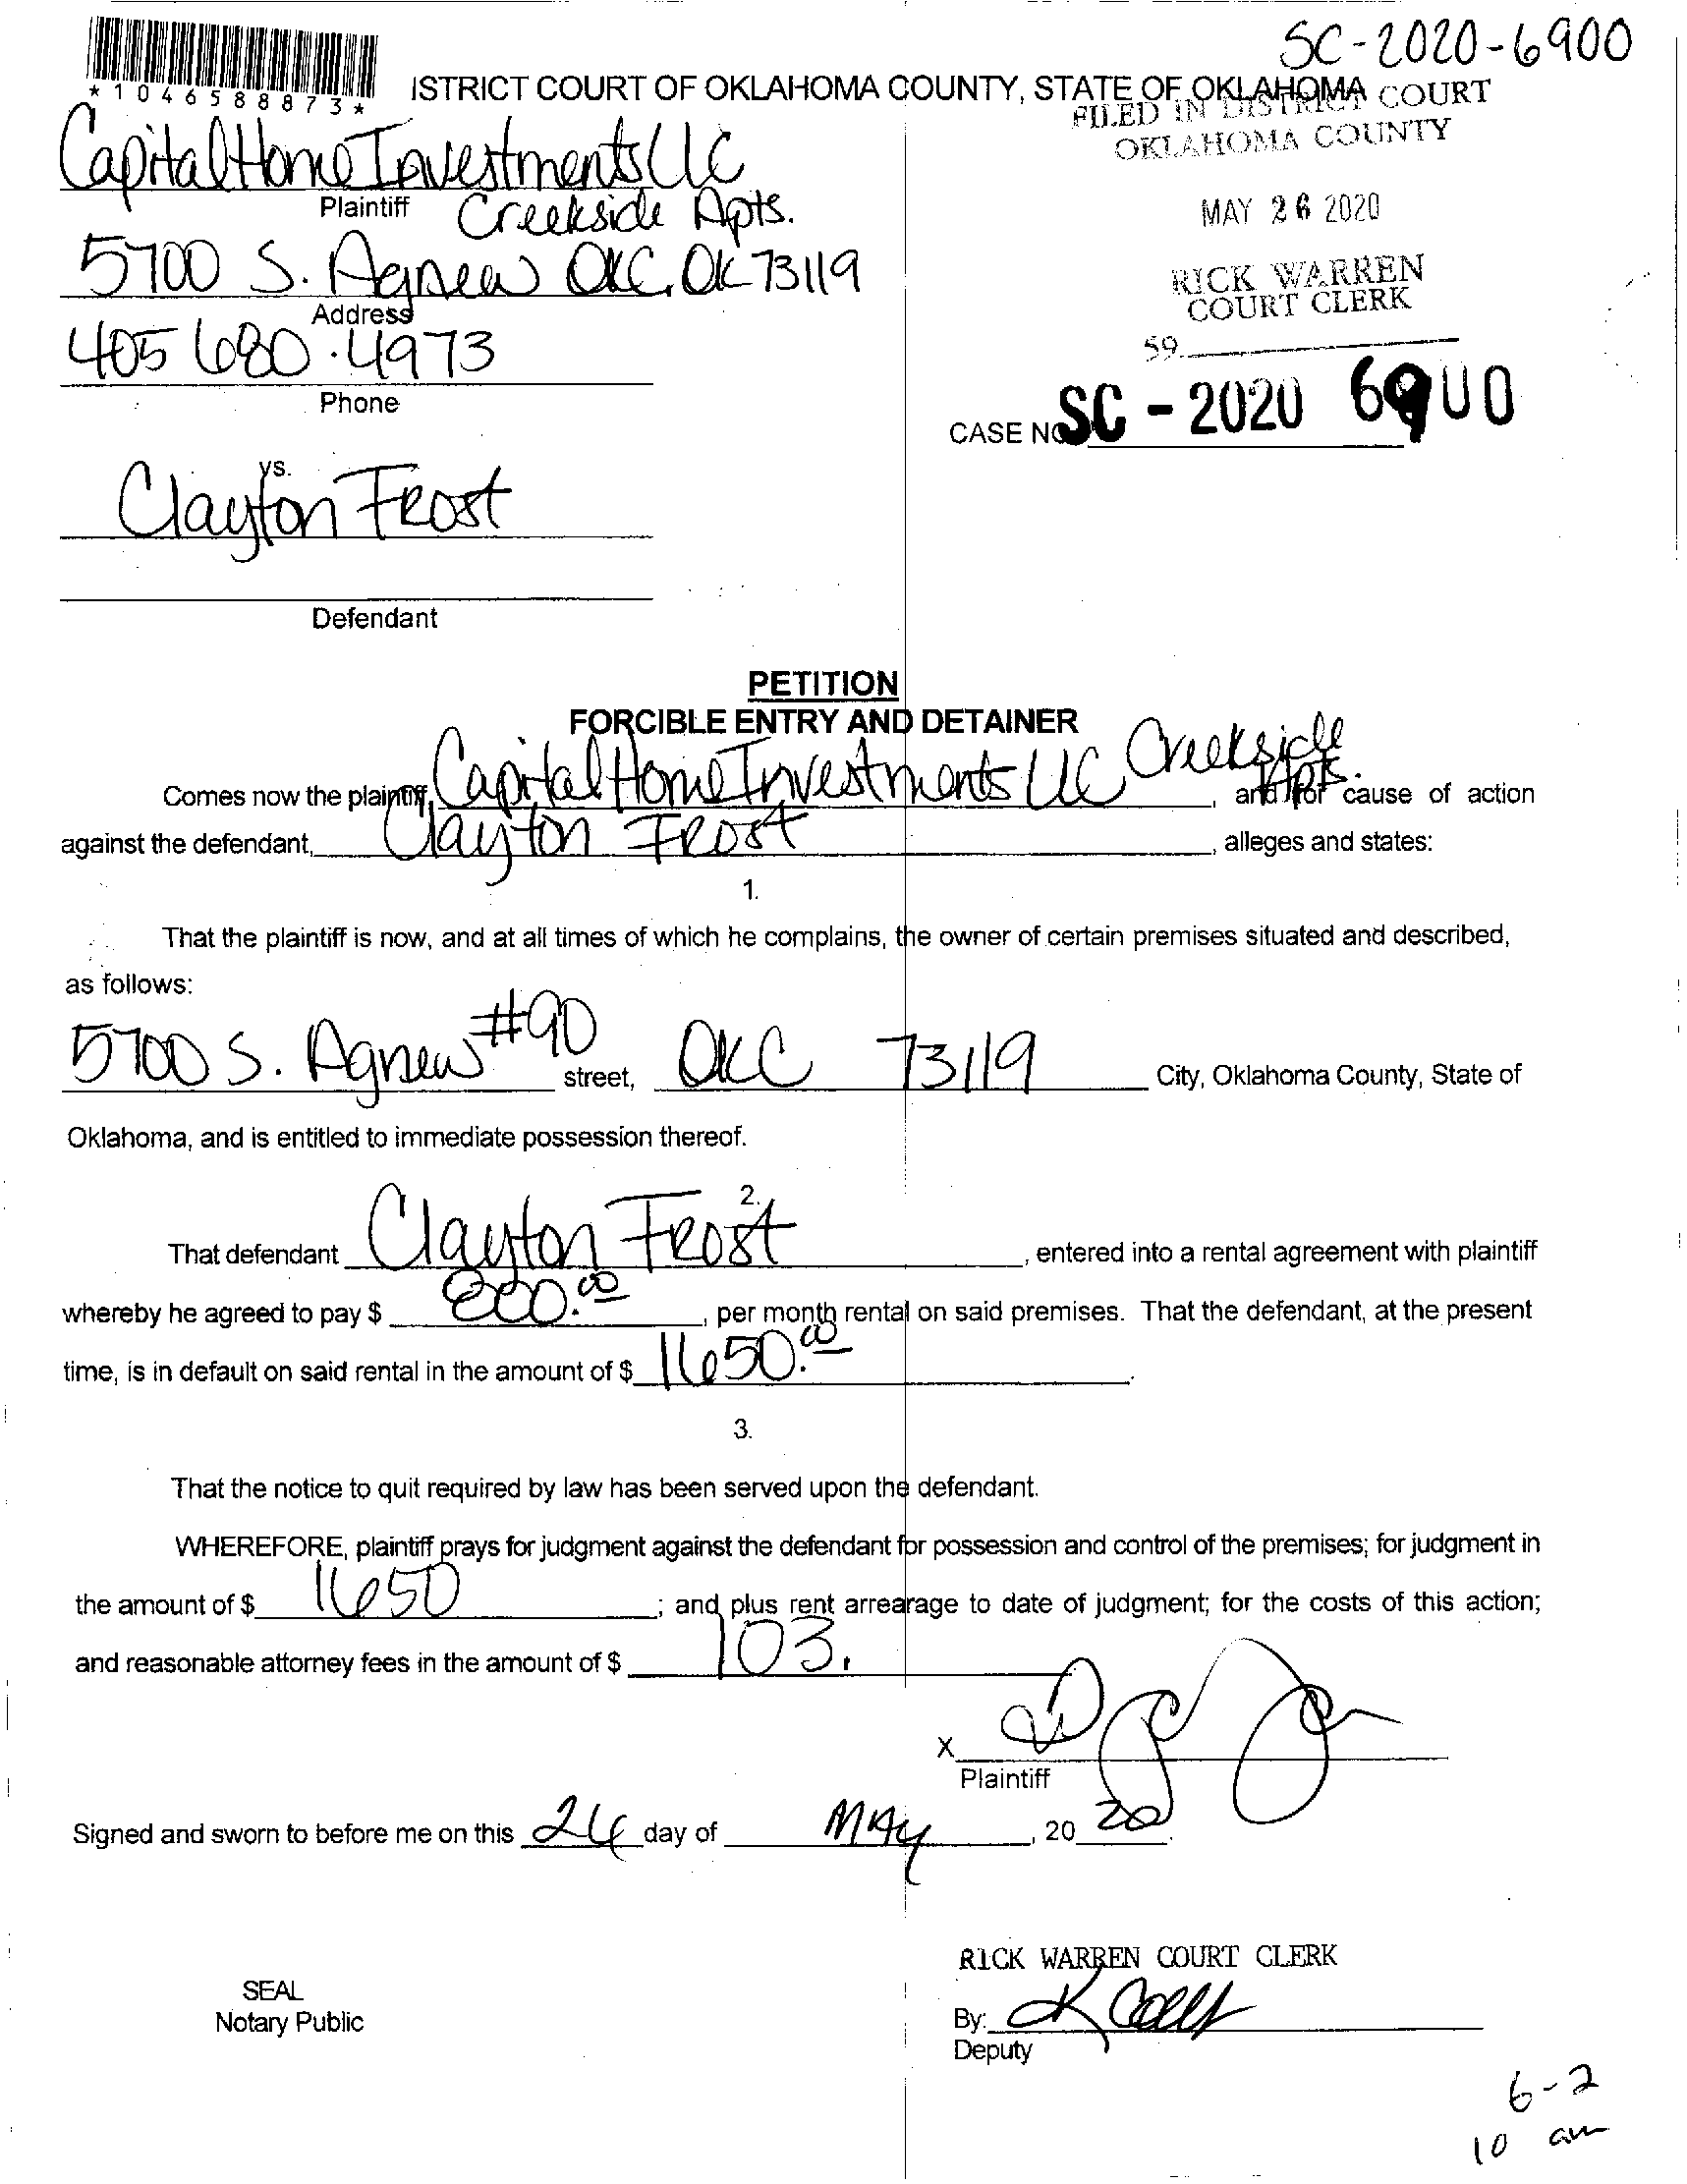 SC-2020-6900
*1046588873*
ISTRICT COURT OF OKLAHOMA COUNTY, STATE OF OKLAHOMA
FILED IN DISTRICT COURT
OKLAHOMA COUNTY
Capital Home Investments LLC
Plaintiff Creekside Apts.
MAY 26 2020
5700 S. Agnew OKC, OK 73119
Address
RICK WARREN
COURT CLERK
405 680.4973
Phone
59
CASE NO SC - 2020 6900
vs.
Clayton Frost
Defendant
PETITION
FORCIBLE ENTRY AND DETAINER
Comes now the plaintiff, Capital Home Investments LLC Creekside Apts., and for cause of action
against the defendant, Clayton Frost, alleges and states:
1.
That the plaintiff is now, and at all times of which he complains, the owner of certain premises situated and described,
as follows:
5700 S. Agnew #90 street, OKC 73119 City, Oklahoma County, State of
Oklahoma, and is entitled to immediate possession thereof.
2.
That defendant Clayton Frost, entered into a rental agreement with plaintiff
whereby he agreed to pay $ 800.00, per month rental on said premises. That the defendant, at the present
time, is in default on said rental in the amount of $ 1650.00.
3.
That the notice to quit required by law has been served upon the defendant.
WHEREFORE, plaintiff prays for judgment against the defendant for possession and control of the premises; for judgment in
the amount of $ 1650; and plus rent arrearage to date of judgment; for the costs of this action;
and reasonable attorney fees in the amount of $ 103.
X
Plaintiff
Signed and sworn to before me on this 26 day of MAY, 20 20.
RICK WARREN COURT CLERK
SEAL
Notary Public
By:
Deputy
6-2
10 am